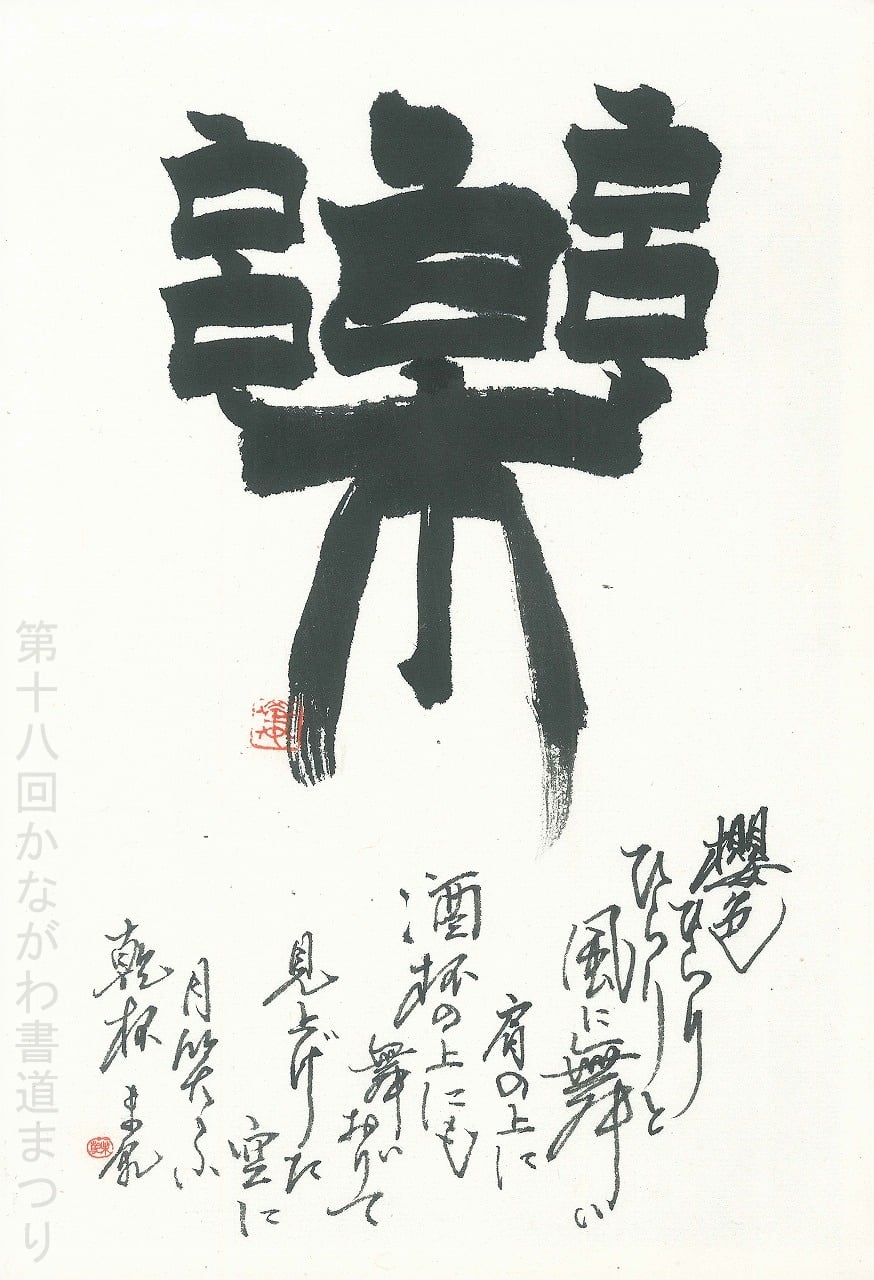 樂
櫻色
ひらり
ひらりと
風に舞い
肩の上に
酒杯の上にも
舞おりて
見上げた
空に
月笑ふ
乾杯
第十八回かながわ書道まつり